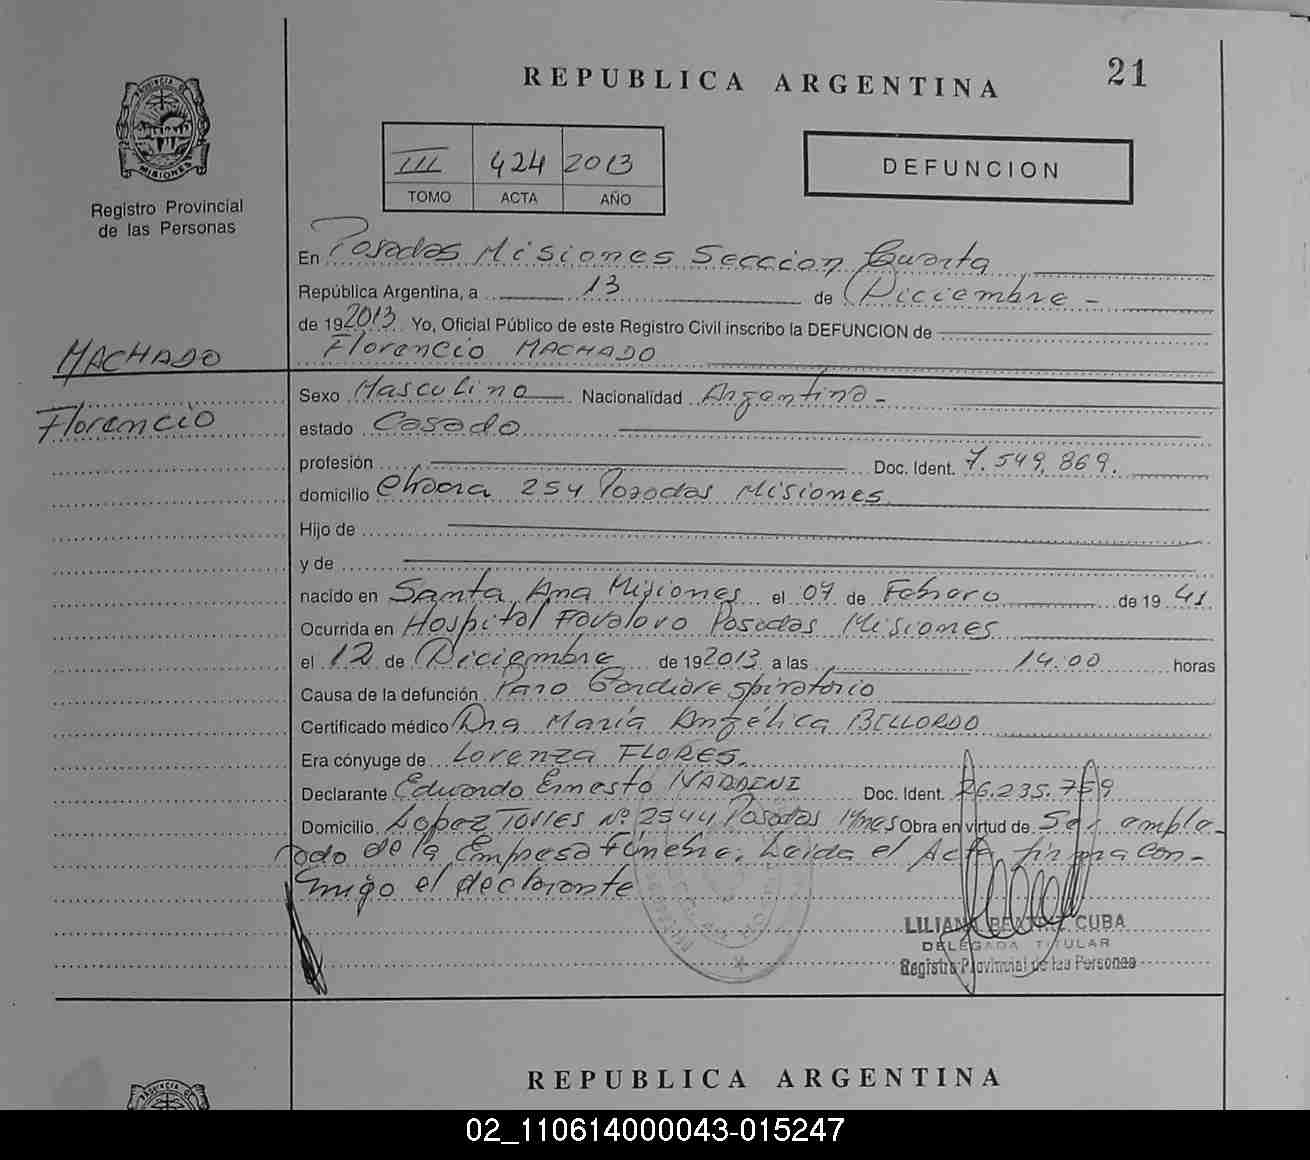 REPUBLICA ARGENTINA
21
III 424 2013
TOMO ACTA AÑO
DEFUNCION
Registro Provincial
de las Personas
En Posadas Misiones Seccion Cuarta
República Argentina, a 13 de Diciembre -
de 192013 Yo, Oficial Público de este Registro Civil inscribo la DEFUNCION de
Florencio MACHADO
MACHADO
Florencio
Sexo Masculino Nacionalidad Argentina -
estado Casado
profesión Doc. Ident. 7.549.869.
domicilio 254 Posadas Misiones
Hijo de
y de
nacido en Santa Ana Misiones el 07 de Febrero de 19 41
Ocurrida en Hospital Favaloro Posadas Misiones
el 12 de Diciembre de 192013 a las 14.00 horas
Causa de la defunción Paro Cardiorespiratorio
Certificado médico Dra María Angélica BELLORDO
Era cónyuge de Lorenza FLORES.
Declarante Eduardo Ernesto NARDINI Doc. Ident. 26.235.759
Domicilio Lopez Torres Nº 2544 Posadas Mnes Obra en virtud de Ser emple-
ado de la Empresa Fúnebre. Leida el Acta firma con-
migo el declarante
LILIANA BEATRIZ CUBA
DELEGADA TITULAR
Registro Provincial de las Personas
REPUBLICA ARGENTINA
02_110614000043-015247